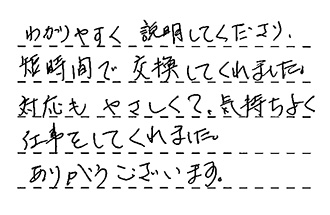 わかりやすく 説明してくださり、
短時間で 交換してくれました。
対応も やさしくて、気持ちよく
仕事をしてくれました。
ありがとうございます。